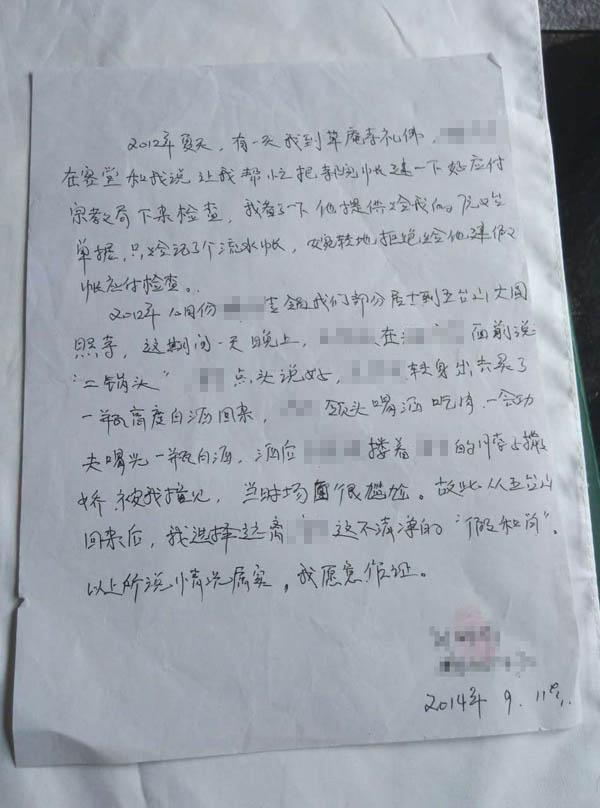 2012年夏天，有一天我到草庵寺礼佛，
在客堂和我说让我帮忙把寺院帐建一下好应付
宗教局下来检查，我看了一下他提供给我的
单据，只给记了个流水帐，婉转地拒绝给他建假
帐应付检查。
2012年 月份 我们部分居士到五台山大圆
照寺，这期间一天晚上， 在 面前说
“二锅头” 点头说好， 转身出去买了
一瓶高度白酒回来， 领头喝酒吃肉，一会功
夫喝光一瓶白酒，酒后 搂着 的脖子撒
娇被我撞见，当时场面很尴尬。故此从五台山
回来后，我选择远离 这不清净的“假和尚”。
以上所说情况属实，我愿意作证。
2014年9.11号.